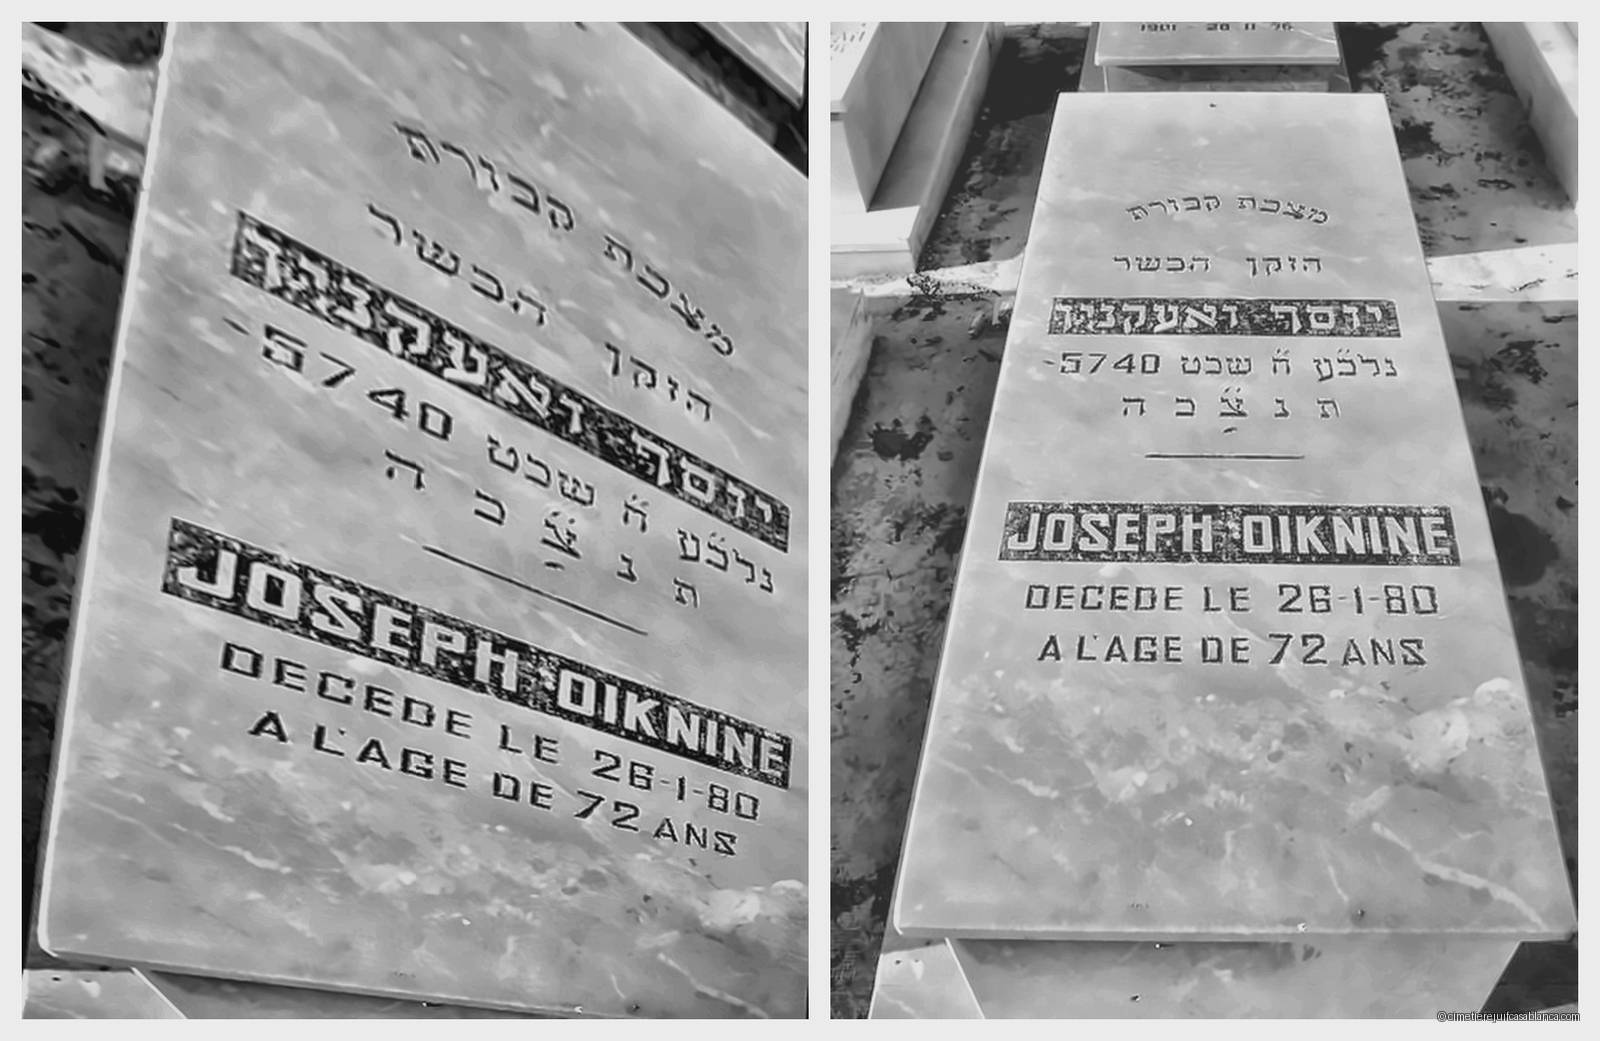 מצבת קבורת
הזקן הכשר
יוסף ואעקנין
נלב״ע ח״ שבט 5740-
ת נ צ״ ב ה
JOSEPH OIKNINE
DECEDE LE 26-1-80
A L'AGE DE 72 ANS
1901 - 28 11 76
מצבת קבורת
הזקן הכשר
יוסף ואעקנין
נלב״ע ח״ שבט 5740-
ת נ צ״ ב ה
JOSEPH OIKNINE
DECEDE LE 26-1-80
A L'AGE DE 72 ANS
©cimetierejuifcasablanca.com